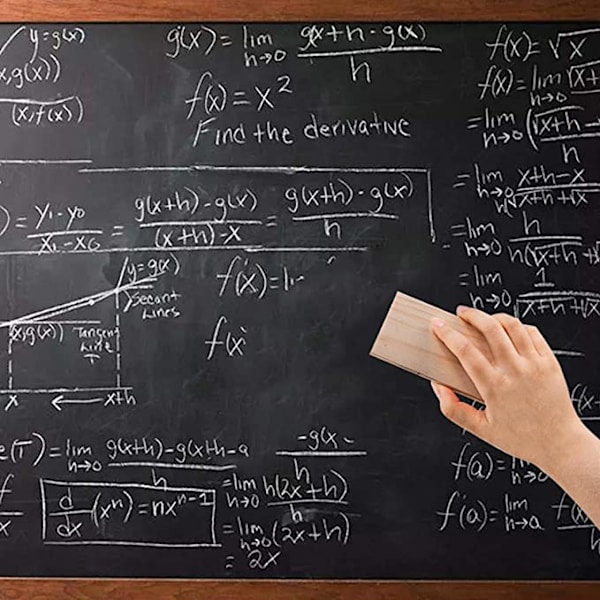 y=g(x)
x,g(x))
(x,f(x))
g'(x) = lim h→0 g(x+h - g(x) / h
f(x) = x²
Find the derivative
) = y₁-y₀ / x₁-x₀ = g(x+h)-g(x) / (x+h)-x = g(x+h)-g(x) / h
y=g(x)
Secant
Lines
x,g(x))
Tangent
Line
T
x ← x+h
f'(x) =
f(x
(T) = lim h→0 g(x+h)-g(x+h-a / h
d/dx (xⁿ) = nxⁿ⁻¹
-g(x
h
= lim h→0 h(2x+h) / h
= lim h→0 (2x+h)
= 2x
f(x) = √x
f(x) = lim h→0 (√x+
= lim h→0 (√x+h - / h
= lim h→0 x+h-x / h(√x+h+(x
= lim h→0 h / h(√x+h +
= lim h→0 1 / √x+h+√x
f(x-
f(a) = h→0
f'(a) = lim h→a f(x